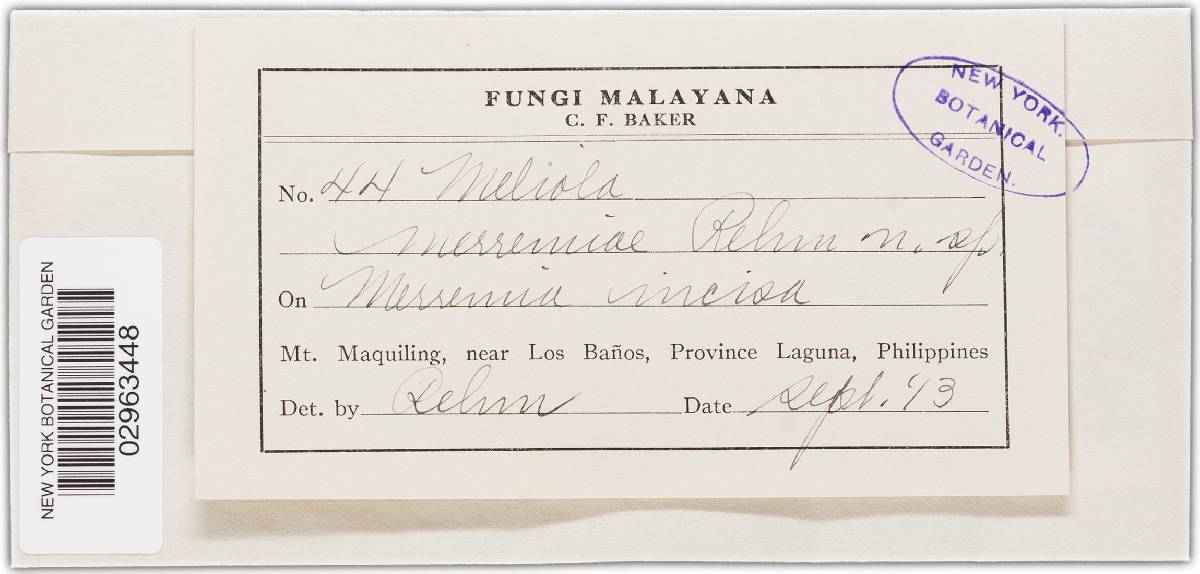 FUNGI MALAYANA
C. F. BAKER
No. 44 Meliola
Merremiae Rehm n. sp.
On Merremia incisa
Mt. Maquiling, near Los Baños, Province Laguna, Philippines
Det. by Rehm Date Sept. '13
NEW YORK.
BOTANICAL
GARDEN.
NEW YORK BOTANICAL GARDEN
02963448